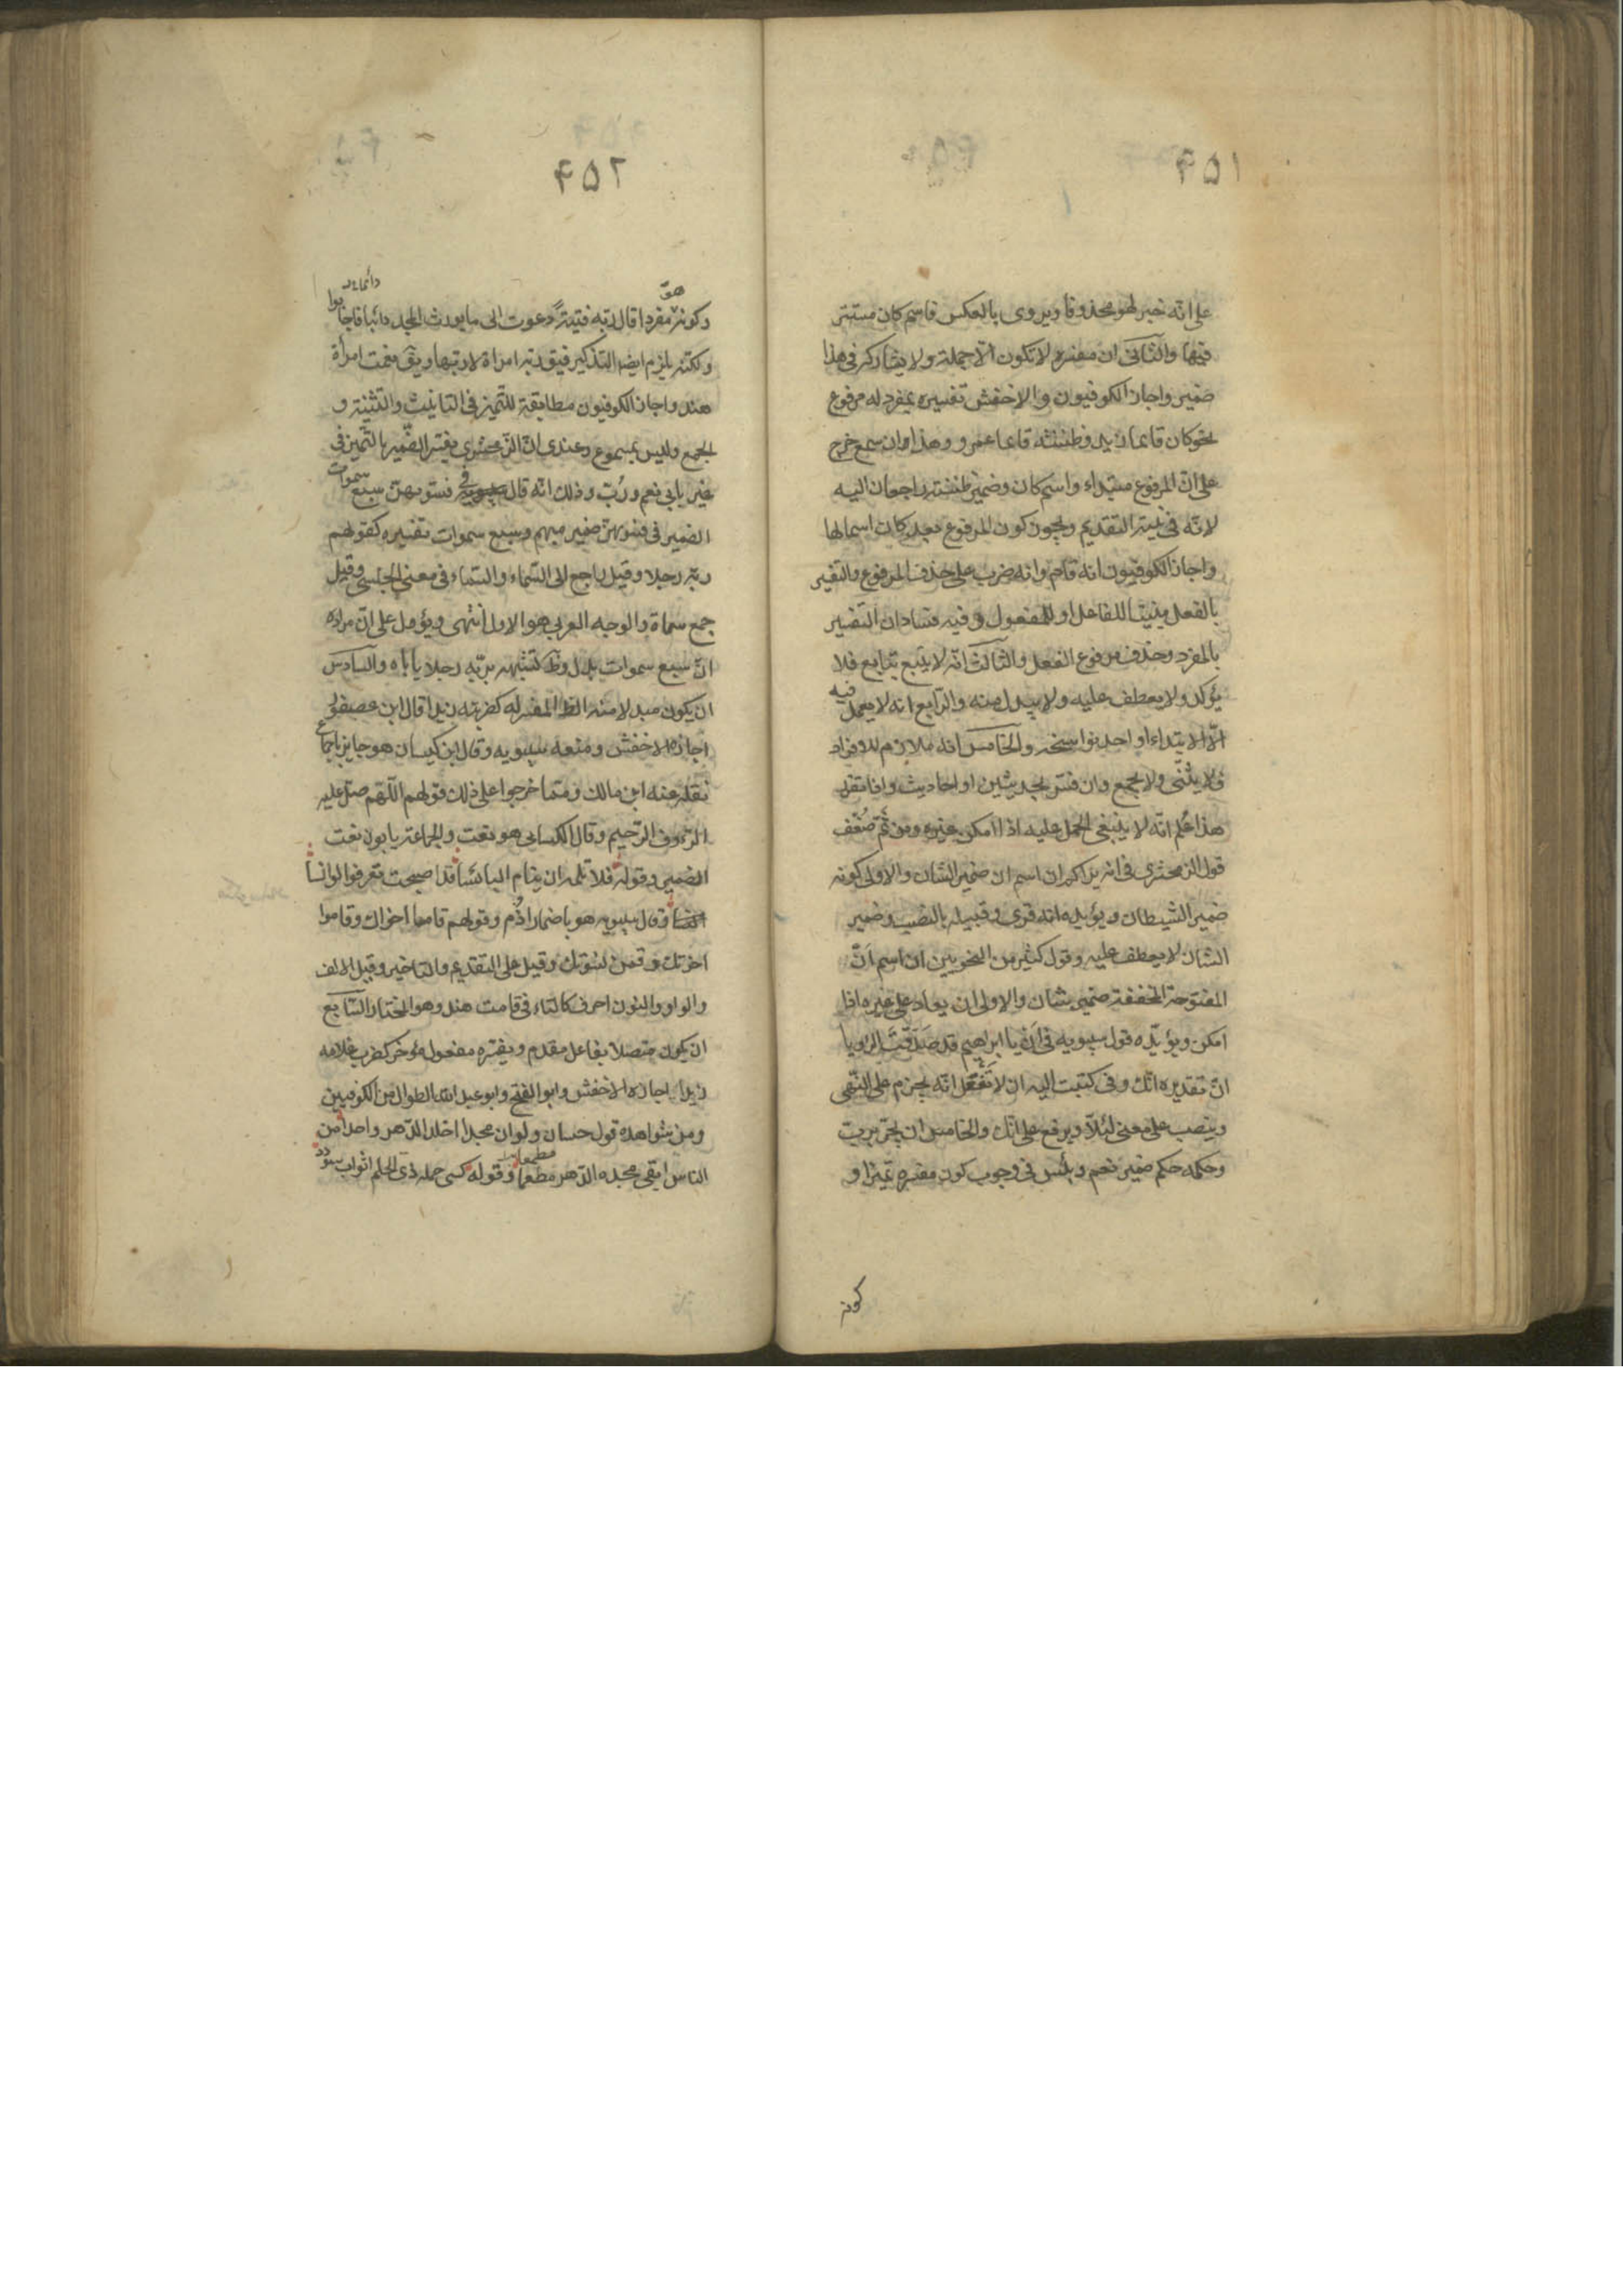 ۴۵۱
على انّه خبر لهو محذوفا ويروى بالعكس فاسم كان مستتر
فيها والثانى ان مفسره لا تكون الا جملة ولا يشاركه فى هذا
ضمير واجاز الكوفيون والاخفش تفسيره بمفرد له مرفوع
نحو كان قائما زيد وظننته قائما عمرو وهذا ان سمع خرج
على ان المرفوع مبتداء واسم كان وضمير ظننته راجعان اليه
لانّه فى نية التقديم ويجوز كون المرفوع بعد كان اسما لها
واجاز الكوفيون انه قام وانه ضرب على حذف المرفوع والتفسير
بالفعل مبنيا للفاعل او للمفعول وفيه فسادان التفسير
بالمفرد وحذف مرفوع الفعل والثالث انّه لا يتبع بتابع فلا
يؤكد ولا يعطف عليه ولا يبدل منه والرابع انه لا يعمل فيه
الّا الابتداء او احد نواسخه والخامس انه ملازم للافراد
فلا يثنّى ولا يجمع وان فسّر بحديثين او احاديث واذا تقرر
هذا عُلم انّه لا ينبغى الحمل عليه اذا امكن غيره ومن ثَمّ ضُعّف
قول الزمخشرى فى انه يراكم ان اسم ان ضمير الشان والاولى كونه
ضمير الشيطان ويؤيده انه قرى وقبيله بالنصب وضمير
الشان لا يعطف عليه وقول كثير من النحويين ان اسم اَنّ
المفتوحة المخففة ضمير شان والاولى ان يعاد على غيره اذا
امكن ويؤيّده قول سيبويه فى اَن يا ابراهيم قد صَدّقتَ الرؤيا
انّ تقديره انّك وفى كتبت اليه ان لا تفعل انّه يجزم على النّهى
وينصب على معنى لئلّا ويرفع على انّك والخامس ان يجرّ بربّ
وحكمه حكم ضمير نعم وبئس فى وجوب كون مفسره تميزا و
كونه
۴۵۲
وكونه هو مفردا قال ربّه فتيةً دعوت الى ما يورث المجد دائبا فاجابوا
دائما
ولكنّه يلزم ايضا التذكير فيق ربّه امراة لا ربّها ويق نعمت امرأة
هند واجاز الكوفيون مطابقته للتّميز فى التانيث والتثنية و
الجمع وليس بمسموع وعندى انّ الزّمخشرى يفسّر الضّمير بالتّميز فى
غير بابى نعم ورُبّ وذلك انّه قال فى فسّويهنّ سبع سموات
الضمير فى فسّويهنّ ضمير مبهم وسبع سموات تفسيره كقولهم
ربّه رجلا وقيل راجع الى السّماء والسّماء فى معنى الجنس وقيل
جمع سماة والوجه العربى هو الاول انتهى ويؤول على انّ مراده
انّ سبع سموات بدل وظ تشبيهه بربّه رجلا ياباه والسّادس
ان يكون مبدلا منه الظ المفسر له كضربته زيدا قال ابن عصفور
اجازه الاخفش ومنعه سيبويه وقال ابن كيسان هو جايز باجماع
نقله عنه ابن مالك وممّا خرجوا على ذلك قولهم اللّهم صلّ عليه
الرّؤوف الرّحيم وقال الكسائى هو نعت والجماعة يابون نعت
الضمير وقوله فلا تلمه ان ينام البائسا قد اصبحت بقرقرى كوانسا
وقال سيبويه هو باضمار اذُم وقولهم قاما اخواك وقاموا
اخوتك وقمن نسوتك وقيل على التقديم والتاخير وقيل الالف
والواو والنون احرف كالتاء فى قامت هند وهو المختار السّابع
ان يكون متصلا بفاعل مقدم ويفسّره مفعول مؤخر كضرب غلامه
زيدا اجازه الاخفش وابو الفتح وابو عبد الله الطوال من الكوفيين
ومن شواهده قول حسان ولو ان مجدا اخلد الدّهر واحدا من
الناس ابقى مجده الدّهر مطعما وقوله كسى حلمه ذى الحلم اثواب سؤدد